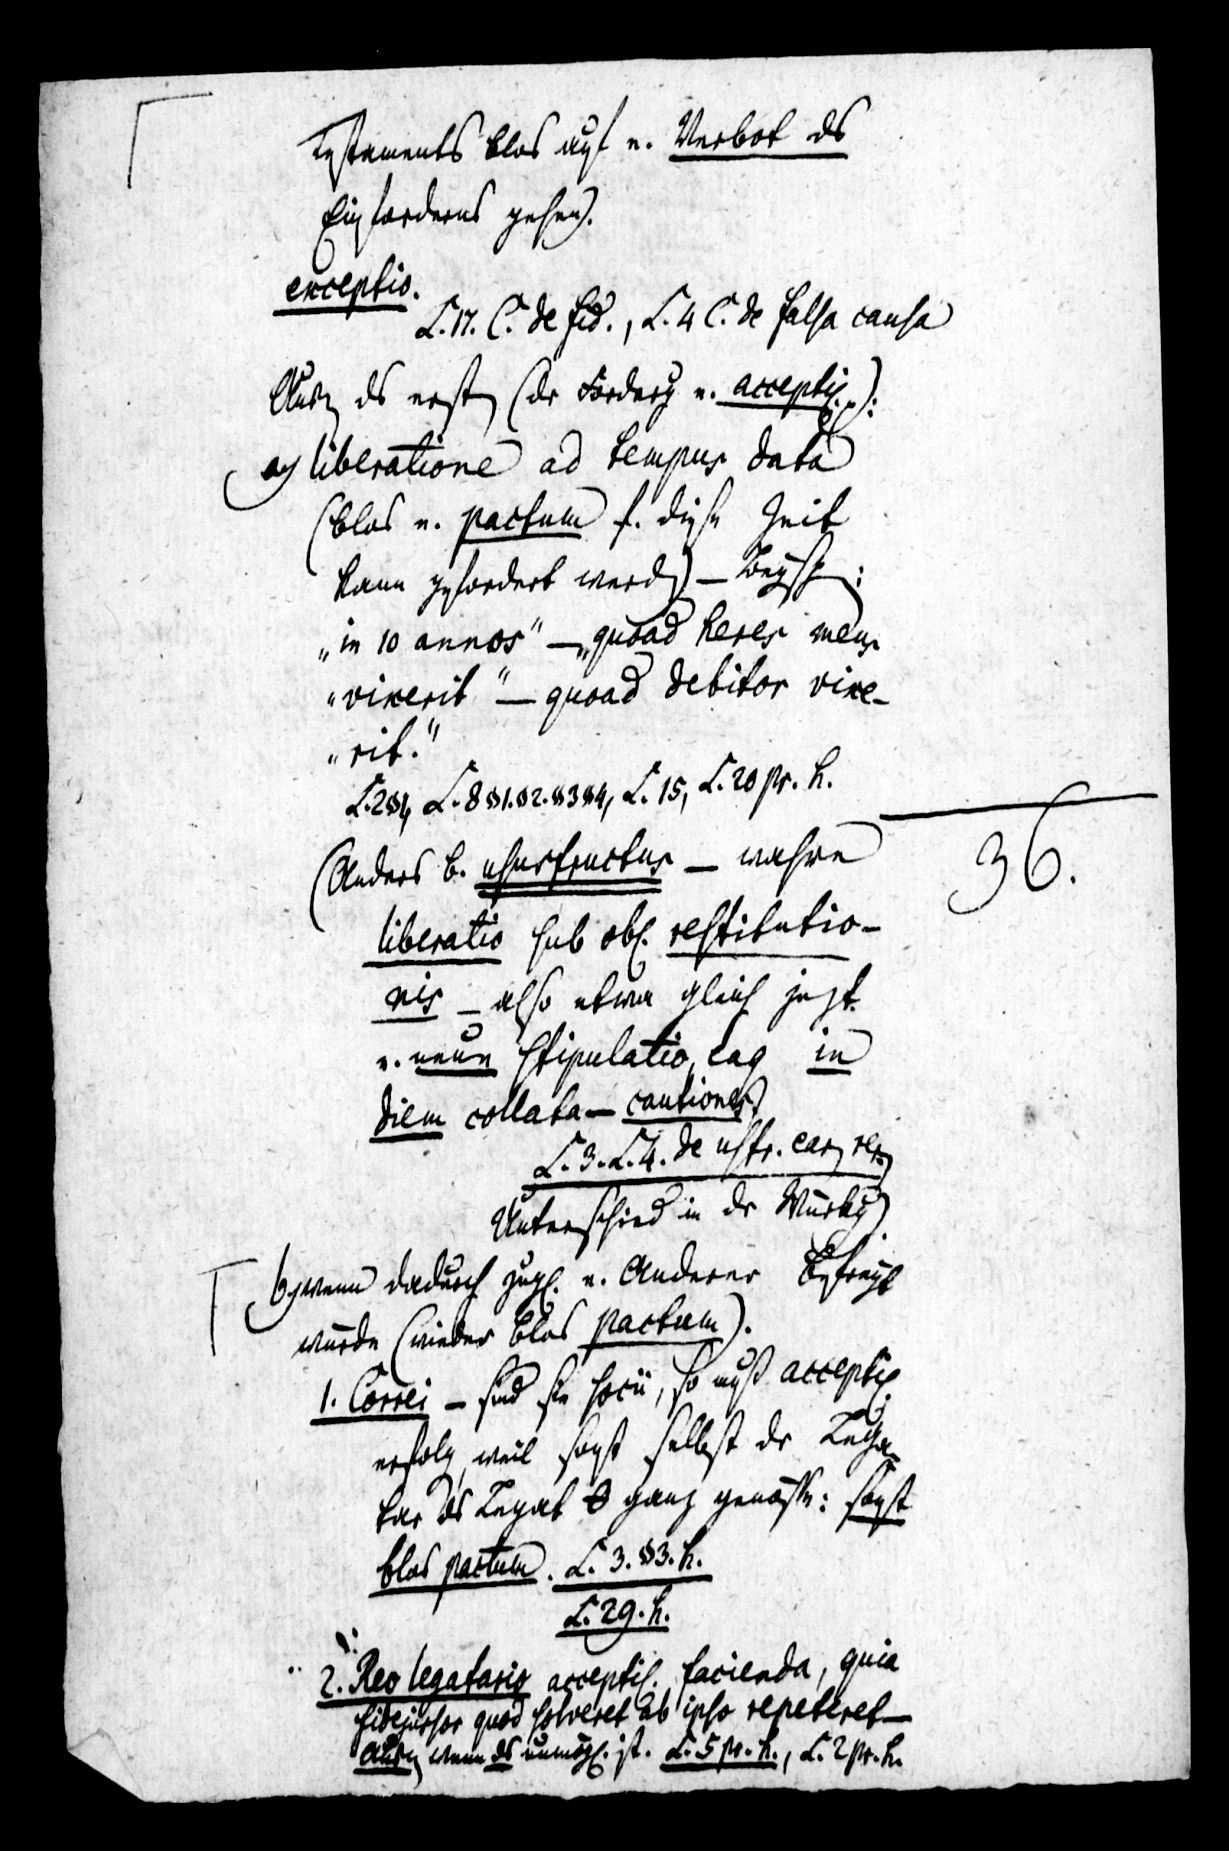 Testaments blos auf e. Verbot ds
Einforderns gehen).
exceptio.
L. 17. C. de fid., L. 4 C. de falsa causa
Ausn ds erst (dr Forderg u. acceptil.):
a) liberatione ad tempus data
(blos e. pactum f. diese Zeit
kann gefordert werd) – Beysp:
„in 10 annos" – „quoad heres meus
„vixerit" – quoad debitor vixe-
„rit."
L. 2 §4, L. 8 §1. §2. §3 §4, L. 15, L. 20 pr. h.
36.
(Anders b. ususfructus – wahre
liberatio sub obl. restitutio-
nis – also etwa gleich jezt
e. neue stipulatio, eaq in
diem collata – cautiones)
L. 3. L. 4. de usfr. ear. rer.
Unterschied in dr Würkg)
b) wenn dadurch zugl. e. Anderer befreyt
würde (wieder blos pactum).
1. Correi – sind sie socii, so muß acceptil.
erfolg, weil sonst selbst dr Lega-
tar ds Legat ganz genösse: sonst
blos pactum. L. 3. §3. h.
L. 29. h.
2. Reo legatario acceptil. facienda, quia
fidejussor quod solveret ab ipso repeteret –
Ausn wenn ds unmögl. ist. L. 5 pr. h., L. 2 pr. h.